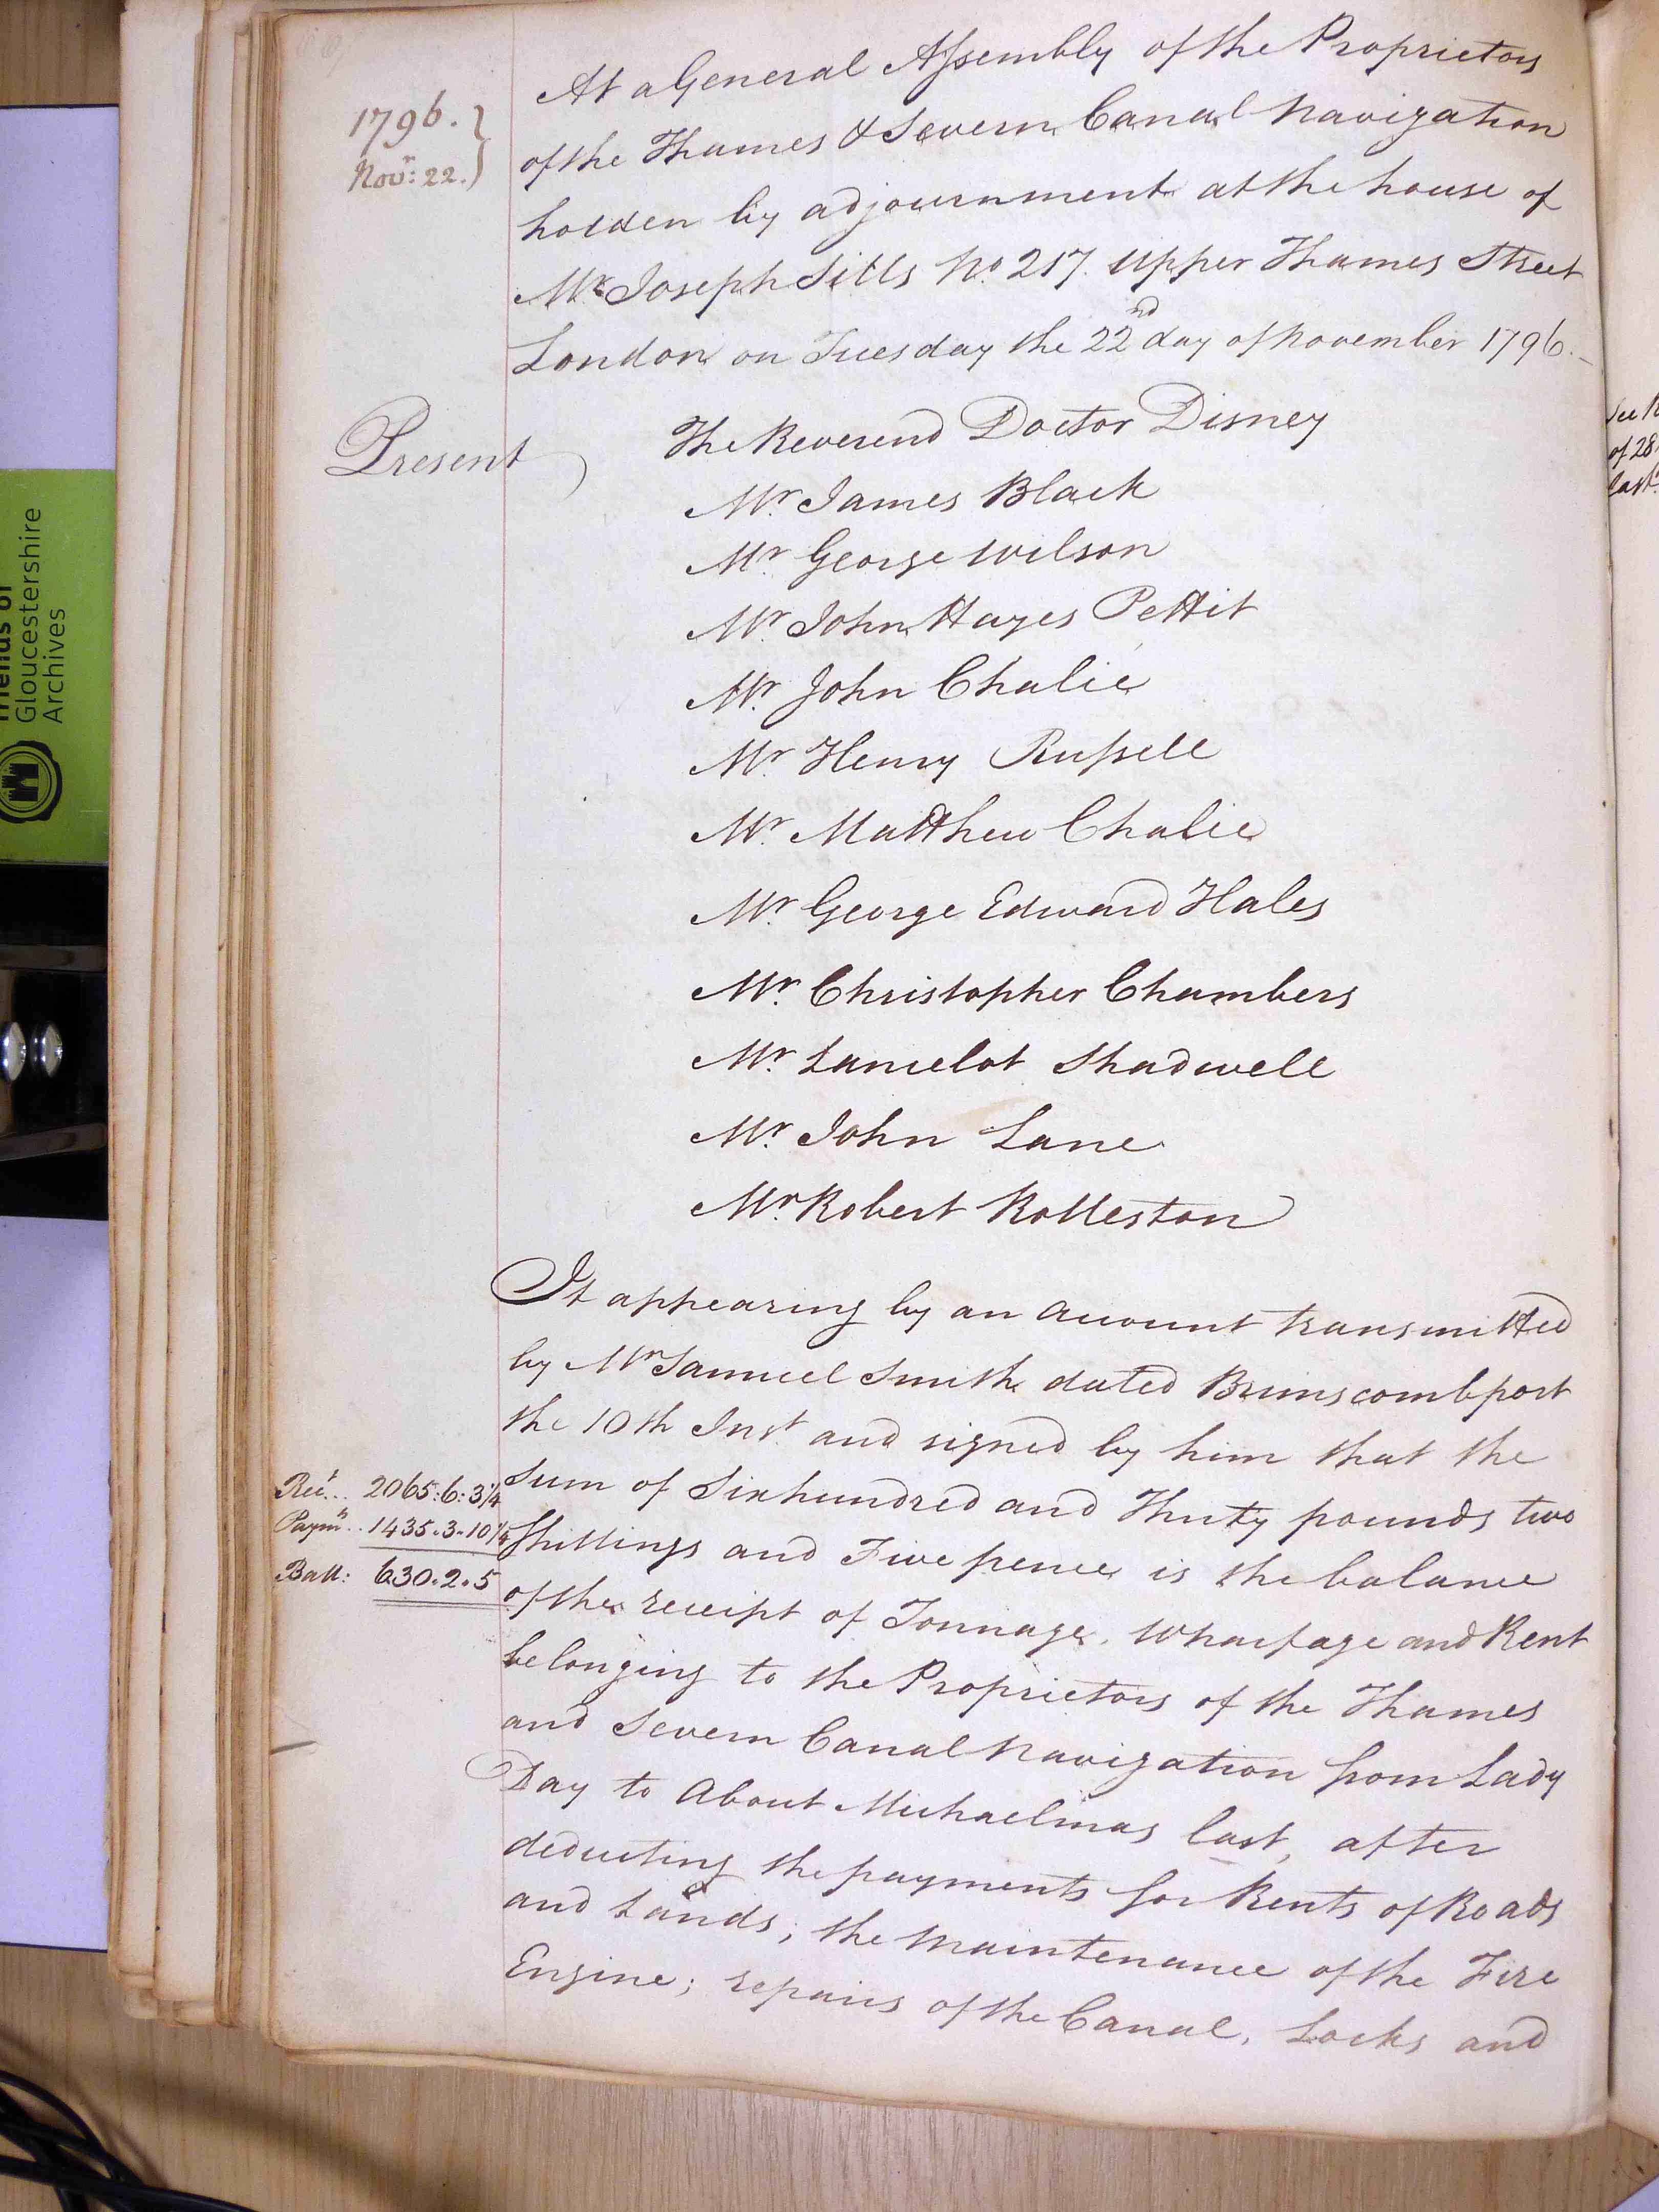 1796.
Novr: 22.
At a General Assembly of the Proprietors
of the Thames & Severn Canal Navigation
holden by adjournment at the house of
Mr Joseph Sills No. 217. Upper Thames Street
London on Tuesday the 22nd day of November 1796.
Present
The Reverend Doctor Disney
Mr. James Black
Mr. George Wilson
Mr. John Hayes Pettit
Mr. John Chalie
Mr. Henry Russell
Mr. Matthew Chalie
Mr. George Edward Hales
Mr. Christopher Chambers
Mr. Lancelot Shadwell
Mr. John Lane
Mr. Robert Rolleston
It appearing by an Account transmitted
by Mr Samuel Smith dated Brimscombport
the 10th Inst. and signed by him that the
Sum of Sixhundred and Thirty pounds two
Shillings and Five pence is the balance
of the receipt of Tonnage, Wharfage and Rent
belonging to the Proprietors of the Thames
and Severn Canal Navigation from Lady
Day to About Michaelmas last, after
deducting the payments for Rents of Roads
and Lands; the Maintenance of the Fire
Engine; repairs of the Canal, Locks and
Rect.. 2065:6:3¼
Paymts.. 1435.3.10¼
Ball: 630.2.5
See
of 28
last.
Friends of
Gloucestershire
Archives